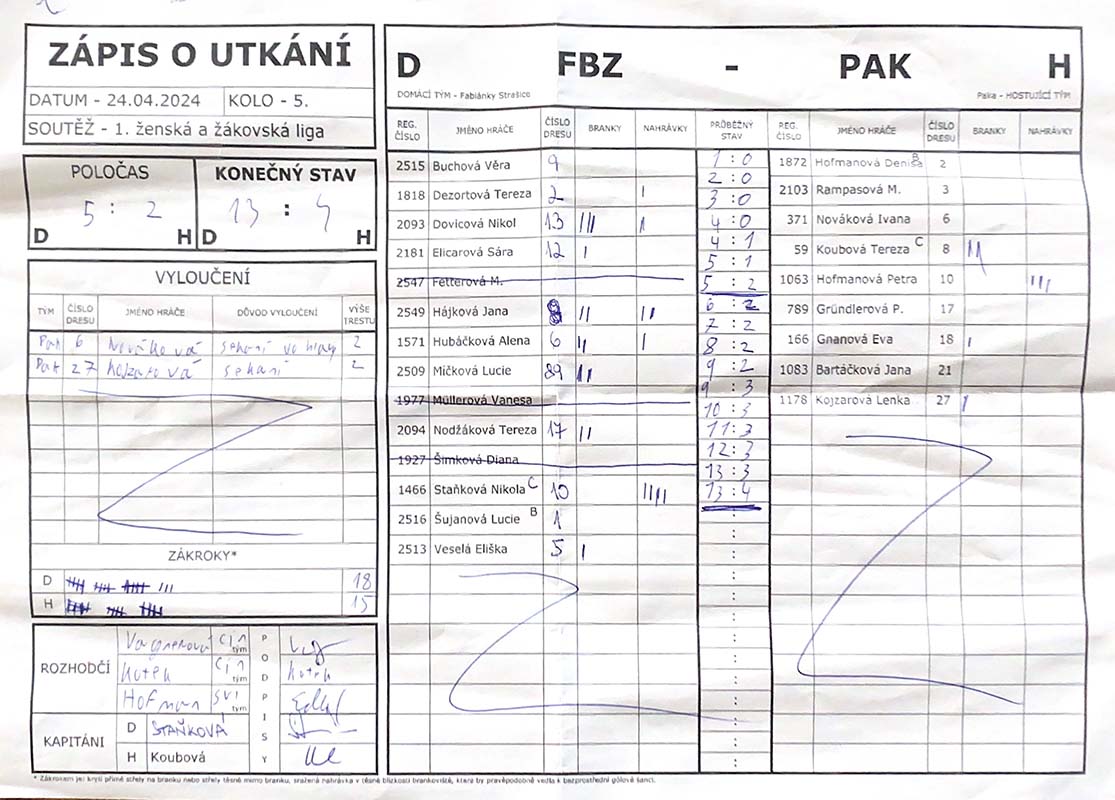 ZÁPIS O UTKÁNÍ
DATUM - 24.04.2024 KOLO - 5.
SOUTĚŽ - 1. ženská a žákovská liga
POLOČAS KONEČNÝ STAV
5 : 2 13 : 4
D H D H
VYLOUČENÍ
TÝM ČÍSLO DRESU JMÉNO HRÁČE DŮVOD VYLOUČENÍ VÝŠE TRESTU
Pak 6 Nováková sekání 2
Pak 27 sekání 2
ZÁKROKY*
D 18
H 15
ROZHODČÍ
PODPISY
Hofman
tým
tým
tým
KAPITÁNI
D STAŇKOVÁ
H Koubová
D FBZ - PAK H
DOMÁCÍ TÝM - Fabiánky Strašice Paka - HOSTUJÍCÍ TÝM
REG. ČÍSLO JMÉNO HRÁČE ČÍSLO DRESU BRANKY NAHRÁVKY PRŮBĚŽNÝ STAV REG. ČÍSLO JMÉNO HRÁČE ČÍSLO DRESU BRANKY NAHRÁVKY
2515 Buchová Věra 9
1818 Dezortová Tereza 2 I
2093 Dovicová Nikol 13 III I
2181 Elicarová Sára 12 I
2547 Fetterová M.
2549 Hájková Jana 8 II II
1571 Hubáčková Alena 6 II I
2509 Mičková Lucie 89 II
1977 Müllerová Vanesa
2094 Nodžáková Tereza 17 II
1927 Šimková Diana
1466 Staňková Nikola C 10 IIII
2516 Šujanová Lucie B 1
2513 Veselá Eliška 5 I
1 : 0
2 : 0
3 : 0
4 : 0
4 : 1
5 : 1
5 : 2
6 : 2
7 : 2
8 : 2
9 : 2
9 : 3
10 : 3
11 : 3
12 : 3
13 : 3
13 : 4
1872 Hofmanová Denisa B 2
2103 Rampasová M. 3
371 Nováková Ivana 6
59 Koubová Tereza C 8 II
1063 Hofmanová Petra 10 III
789 Gründlerová P. 17
166 Gnanová Eva 18 I
1083 Bartáčková Jana 21
1178 Kojzarová Lenka 27 I
* Zákrokem jej krytí přímé střely na branku nebo střely těsně mimo branku, sražená nahrávka v těsné blízkosti brankoviště, která by pravěpodobně vedla k bezprostřední gólové šanci.